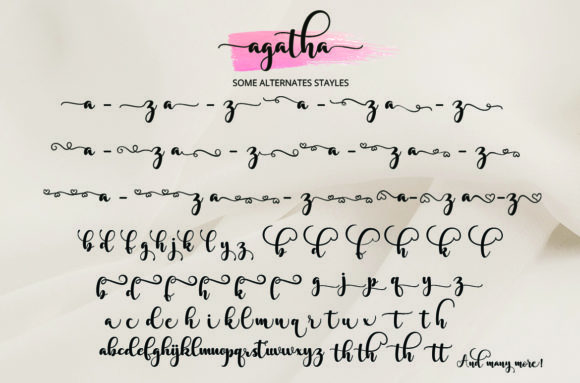 agatha
SOME ALTERNATES STAYLES
a - z a - z a - z a - z
a - z a - z a - z a - z
a - z a - z a - z a - z
b d f g h j k l y z b d f h k l
b d f h k l g j p q y z
a c d e h i k l m n q r t u x t th
abcdefghijklmnopqrstuvwxyz th th th tt
And many more!